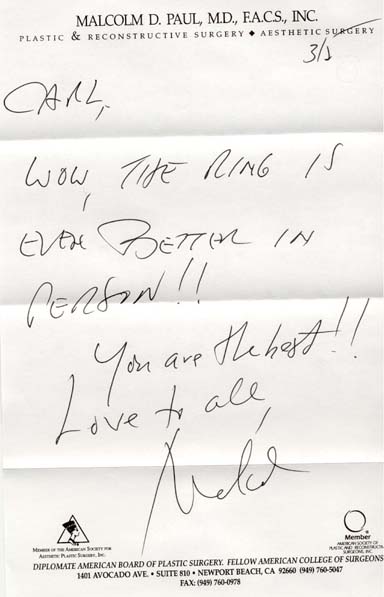 MALCOLM D. PAUL, M.D., F.A.C.S., INC.
PLASTIC & RECONSTRUCTIVE SURGERY ◆ AESTHETIC SURGERY
3/1
CARL,
WOW, THE RING IS
EVEN BETTER IN
PERSON!!
You are the best!!
Love to all,
MEMBER OF THE AMERICAN SOCIETY FOR
AESTHETIC PLASTIC SURGERY, INC.
Member
AMERICAN SOCIETY OF
PLASTIC AND RECONSTRUCTIVE
SURGEONS, INC.
DIPLOMATE AMERICAN BOARD OF PLASTIC SURGERY. FELLOW AMERICAN COLLEGE OF SURGEONS
1401 AVOCADO AVE. • SUITE 810 • NEWPORT BEACH, CA 92660 (949) 760-5047
FAX: (949) 760-0978